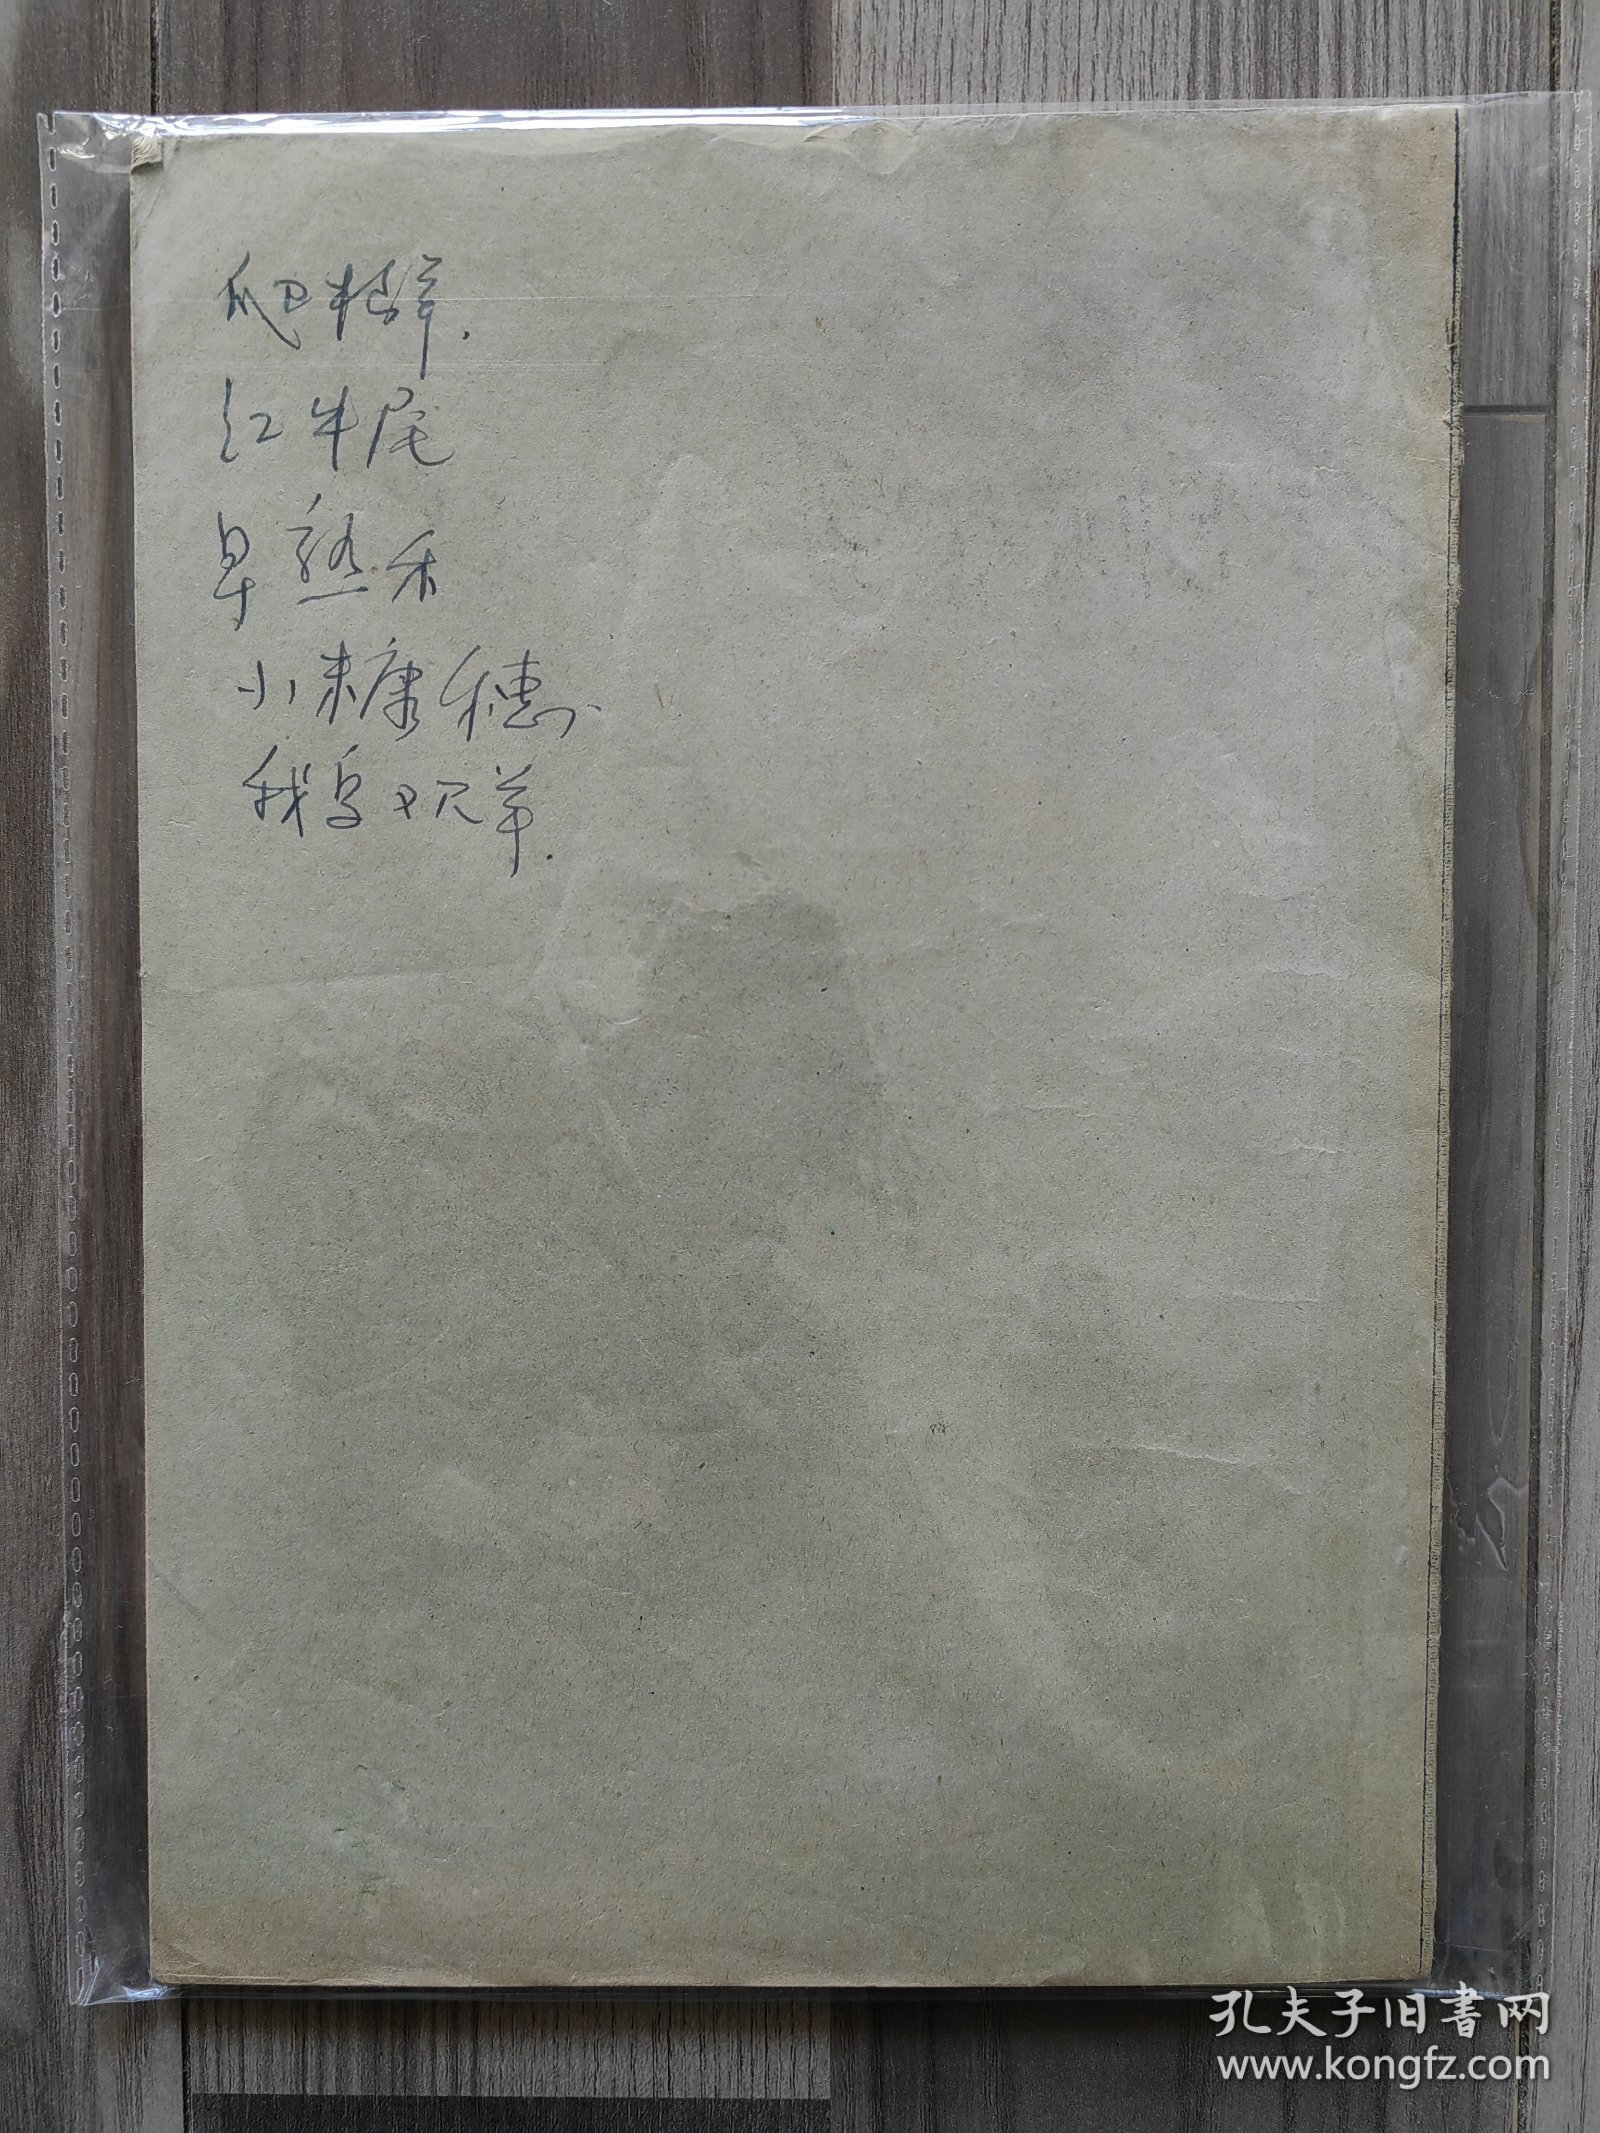 爬根草.
红牛尾
早熟禾
小糠穗
鹅观草.
孔夫子旧书网
www.kongfz.com